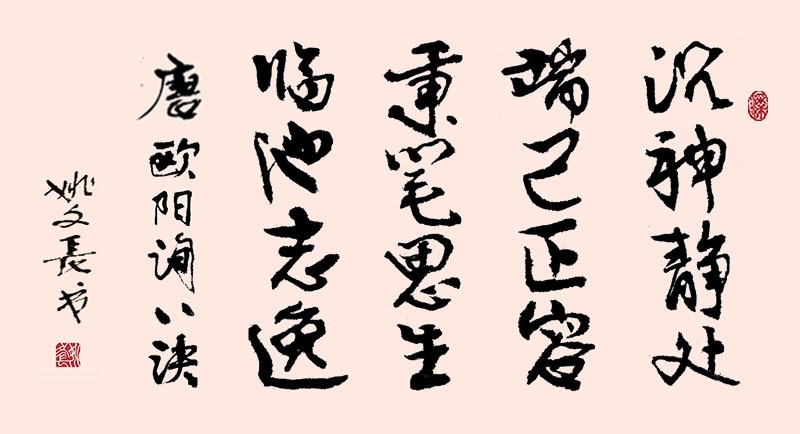 沉神静处
端己正容
秉笔思生
临池志逸
唐欧阳询八诀
姚文長书